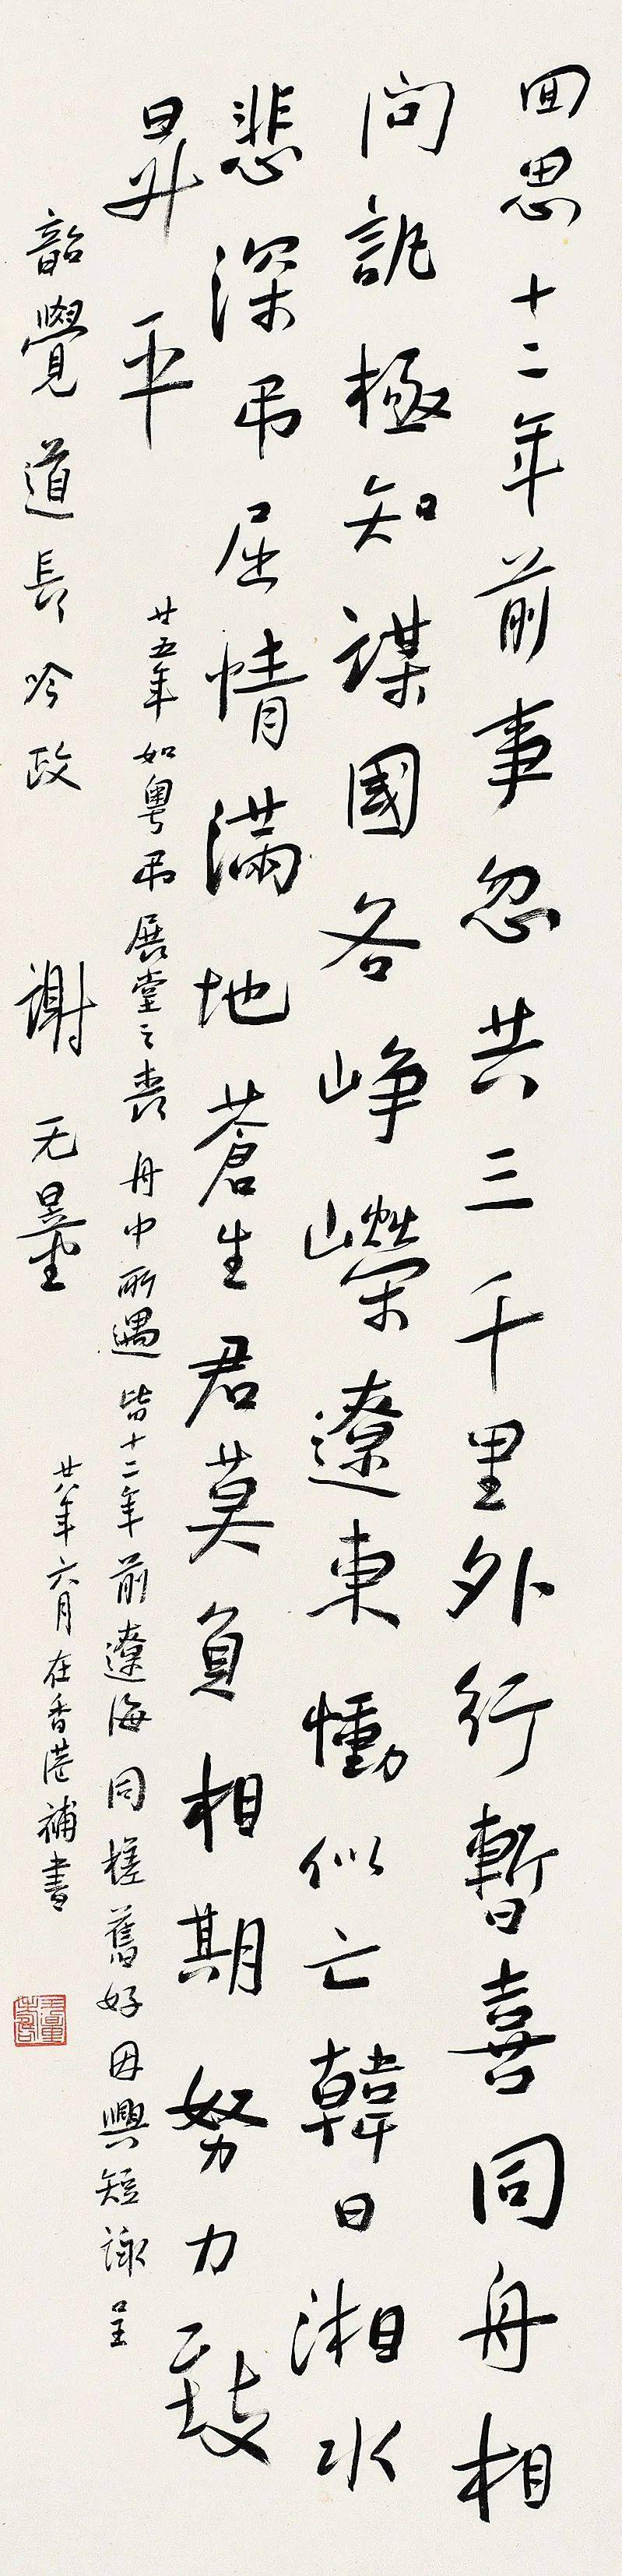 回思十二年前事忽共三千里外行暫喜同舟相
問訊極知謀國各崢嶸遼東慟似亡韓日湘水
悲深弔屈情滿地蒼生君莫負相期努力致
昇平
廿五年如粵弔展堂之喪舟中所遇皆十二年前遼海同槎舊好因興短詠呈
韶覺道長吟政
謝无量
廿八年六月在香港補書